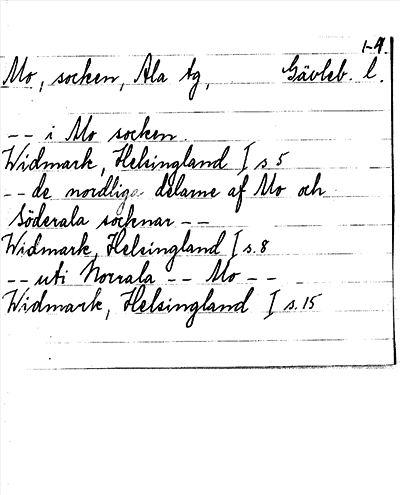 1-4.
Mo, socken, Ala tg, Gävleb. l.
-- i Mo socken.
Widmark, Helsingland I s 5
-- de nordliga delarne af Mo och
Söderala socknar --
Widmark, Helsingland I s. 8
-- uti Norrala -- Mo --
Widmark, Helsingland I s. 15